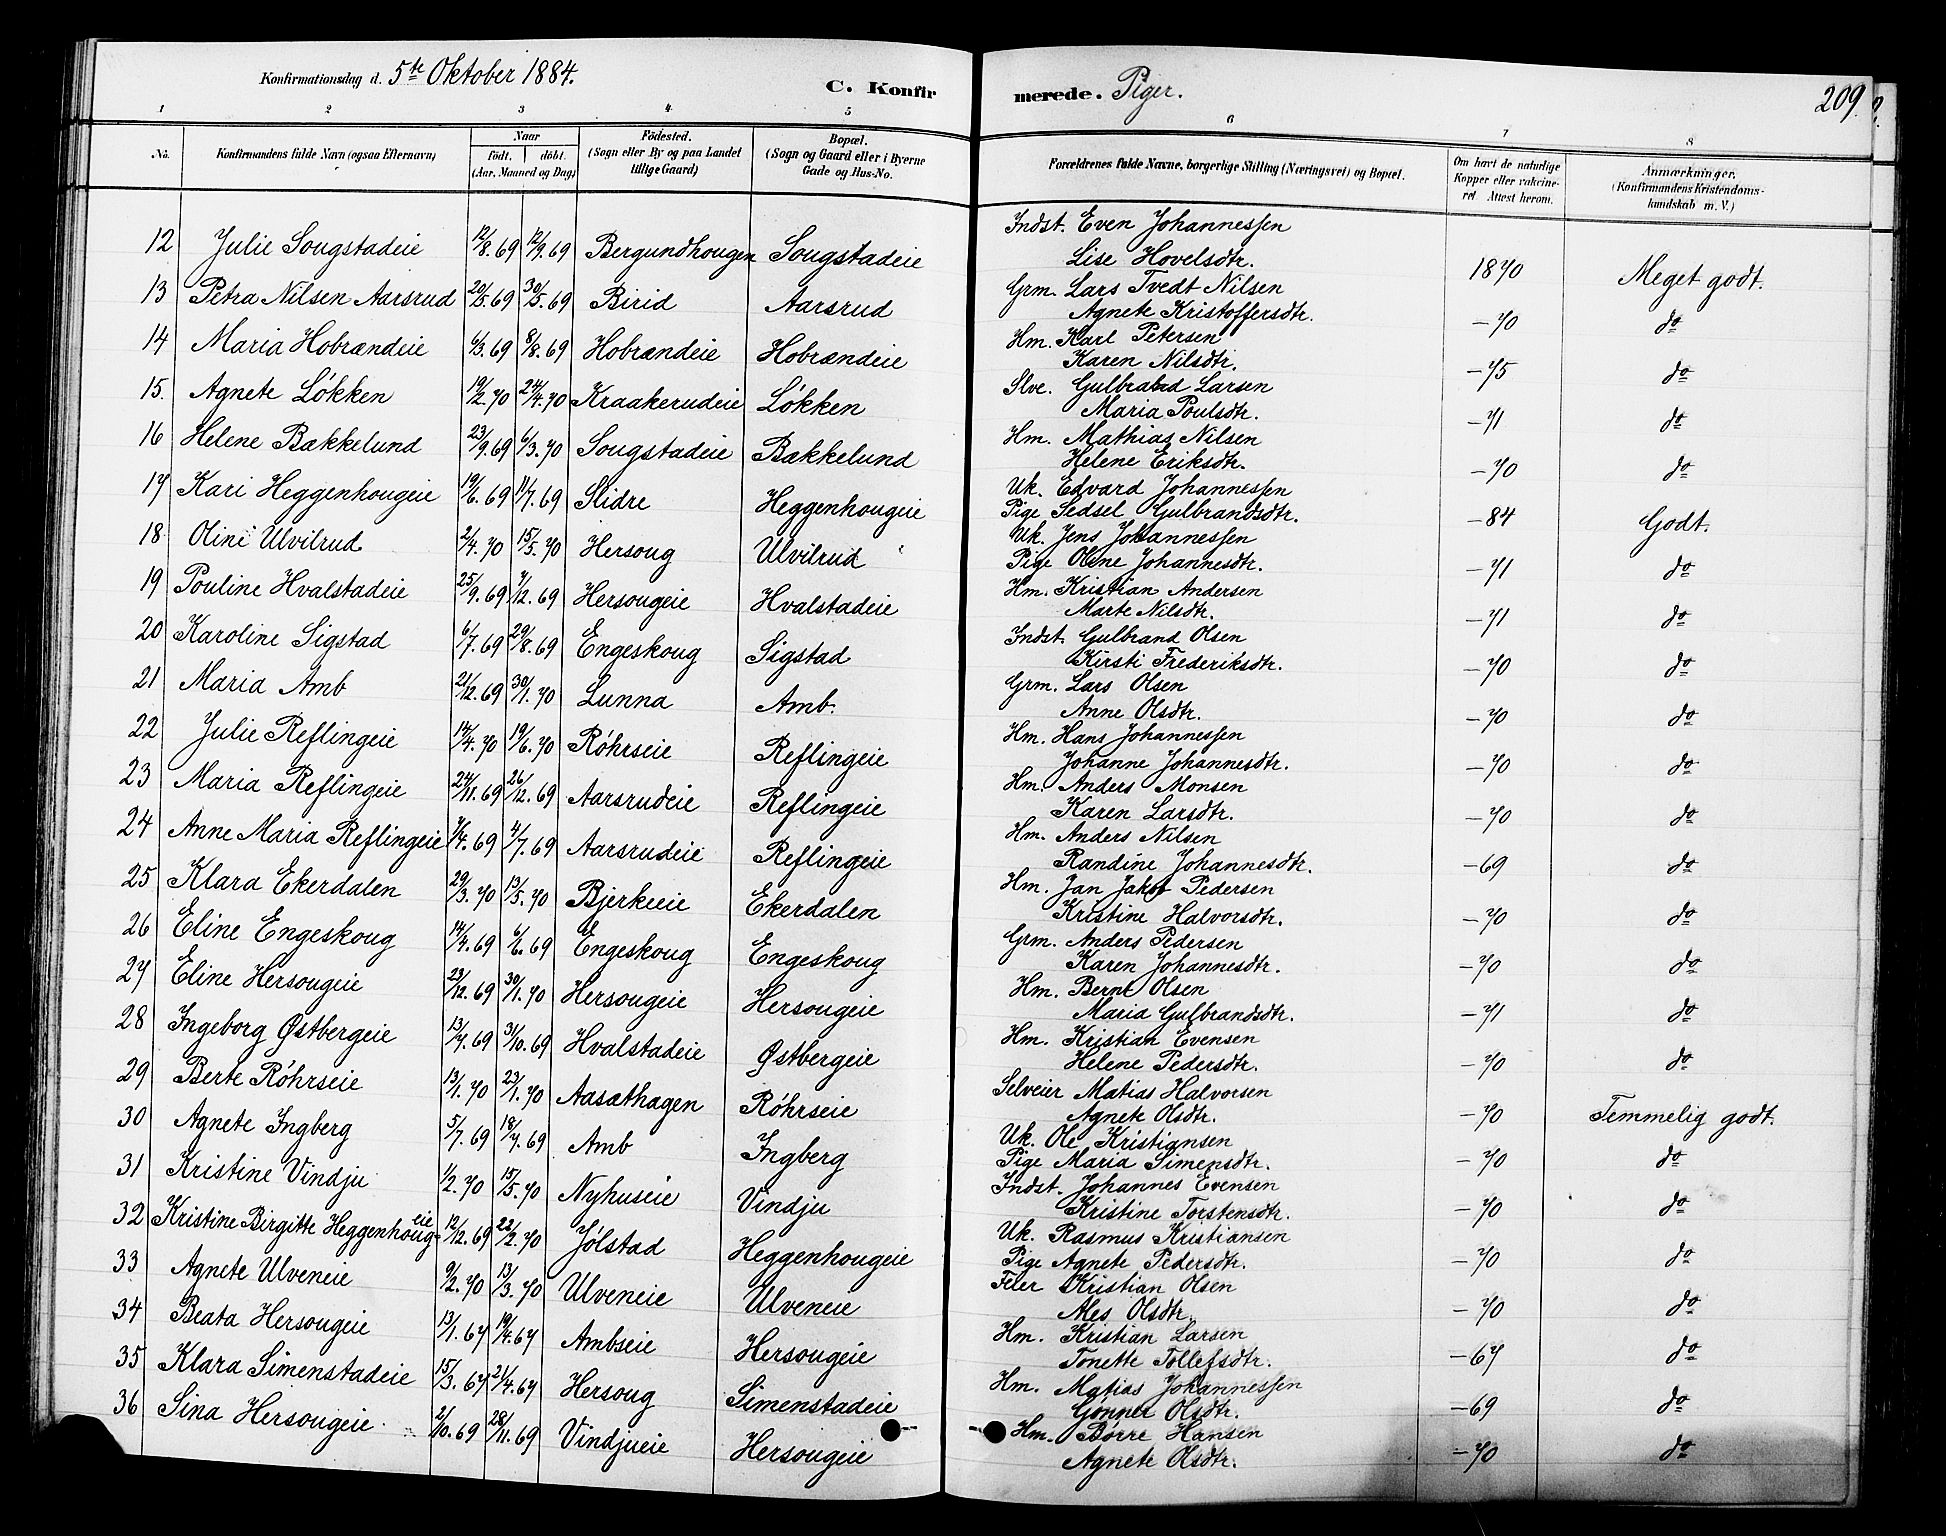 Konfirmationsdag d. 5te Oktober 1884.
C. Konfirmerede. Piger.
209.
1 2 3 4 5 6 7 8
No. Konfirmandens fulde Navn (ogsaa Efternavn) Naar födt. döbt. (Aar, Maaned og Dag) Födested. (Sogn eller By og paa Landet tillige Gaard) Bopæl. (Sogn og Gaard eller i Byerne Gade og Hus-No. Forældrenes fulde Navne, borgerlige Stilling (Næringsvei) og Bopæl. Om havt de naturlige Kopper eller vakcineret Attest herom. Anmærkninger. (Konfirmandens Kristendomskundskab m. V.)
12 Julie Sougstadeie 12/8.69 12/9.69 Bergundhougen Sougstadeie Indst. Even Johannessen
Lise Hovelsdtr. 1870 Meget godt.
13 Petra Nilsen Aarsrud 20/5.69 30/5.69 Birid Aarsrud Grm. Lars Tvedt Nilsen
Agnete Kristoffersdtr. -70 do
14 Maria Hobrændeie 6/3.69 8/8.69 Hobrændeie Hobrændeie Hm. Karl Petersen
Karen Nilsdtr. -75 do
15. Agnete Løkken 19/2.70 24/4.70 Kraakerudeie Løkken Slve. Gulbrand Larsen
Maria Poulsdtr. -71 do
16 Helene Bækkelund 23/9.69 6/3.70 Sougstadeie Bækkelund Hm. Mathias Nilsen
Helene Eriksdtr. -70 do
17 Kari Heggenhougeie 19/6.69 11/7.69 Slidre Heggenhougeie Uk. Edvard Johannessen
Pige Sedsel Gulbrandsdtr. -84 Godt.
18. Oline Ulvilrud 2/4.70 15/5.70 Hersoug Ulvilrud Uk. Jens Johannessen
Pige Oline Johannesdtr. -71 do
19 Pouline Hvalstadeie 25/9.69 7/12.69 Hersougeie Hvalstadeie Hm. Kristian Andersen
Marte Nilsdtr. -71 do
20 Karoline Sigstad 6/7.69 29/8.69 Engeskoug Sigstad Indst. Gulbrand Olsen
Kirsti Frederiksdtr. -70 do
21 Maria Amb 21/12.69 30/1.70 Lunna Amb. Grm. Lars Olsen
Anne Olsdtr. -70 do
22 Julie Reflingeie 17/4.70 19/6.70 Røhrseie Reflingeie Hm. Hans Johannessen
Johanne Johannesdtr. -70 do
23 Maria Reflingeie 24/11.69 26/12.69 Aarsrudeie Reflingeie Hm. Anders Monsen
Karen Larsdtr. -70 do
24 Anne Maria Reflingeie 7/4.69 4/7.69 Aarsrudeie Reflingeie Hm. Anders Nilsen
Randine Johannesdtr. -69 do
25 Klara Ekerdalen 29/3.70 13/5.70 Bjerkeeie Ekerdalen Hm. Jan Jakob Pedersen
Kristine Halvorsdtr. -70 do
26 Eline Engeskoug 14/4.69 6/6.69 Engeskoug Engeskoug Grm. Anders Pedersen
Karen Johannesdtr. -70 do
27 Eline Hersougeie 23/12.69 30/1.70 Hersougeie Hersougeie Hm. Bernt Olsen
Maria Gulbrandsdtr. -71 do
28 Ingeborg Østbergeie 13/7.69 31/10.69 Hvalstadeie Østbergeie Hm. Kristian Evensen
Helene Pedersdtr. -70 do
29 Berte Røhrseie 13/1.70 23/1.70 Aasæthagen Røhrseie Selveier Matias Halvorsen
Agnete Olsdtr. -70 Temmelig godt.
30 Agnete Ingberg 5/7.69 18/7.69 Amb Ingberg Uk. Ole Kristiansen
Pige Maria Simensdtr. -70 do
31 Kristine Vindju 1/2.70 15/5.70 Nyhuseie Vindju Indst. Johannes Evensen
Kristine Torstensdtr. -70 do
32 Kristine Birgitte Heggenhougeie 12/12.69 22/2.70 Jølstad Heggenhougeie Uk. Rasmus Kristiansen
Pige Agnete Pedersdtr. -70 do
33 Agnete Ulveneie 9/2.70 13/3.70 Ulveneie Ulveneie Feier Kristian Olsen
Ales Olsdtr. -70 do
34 Beata Hersougeie 13/1.67 19/4.67 Ambseie Hersougeie Hm. Kristian Larsen
Tonette Tollefsdtr. -67 do
35 Klara Simenstadeie 15/3.67 21/4.67 Hersoug Simenstadeie Hm. Matias Johannessen
Gonner Olsdtr. -69 do
36 Sina Hersougeie 2/10.69 28/11.69 Vindjueie Hersougeie Hm. Børre Hansen
Agnete Olsdtr. -70 do